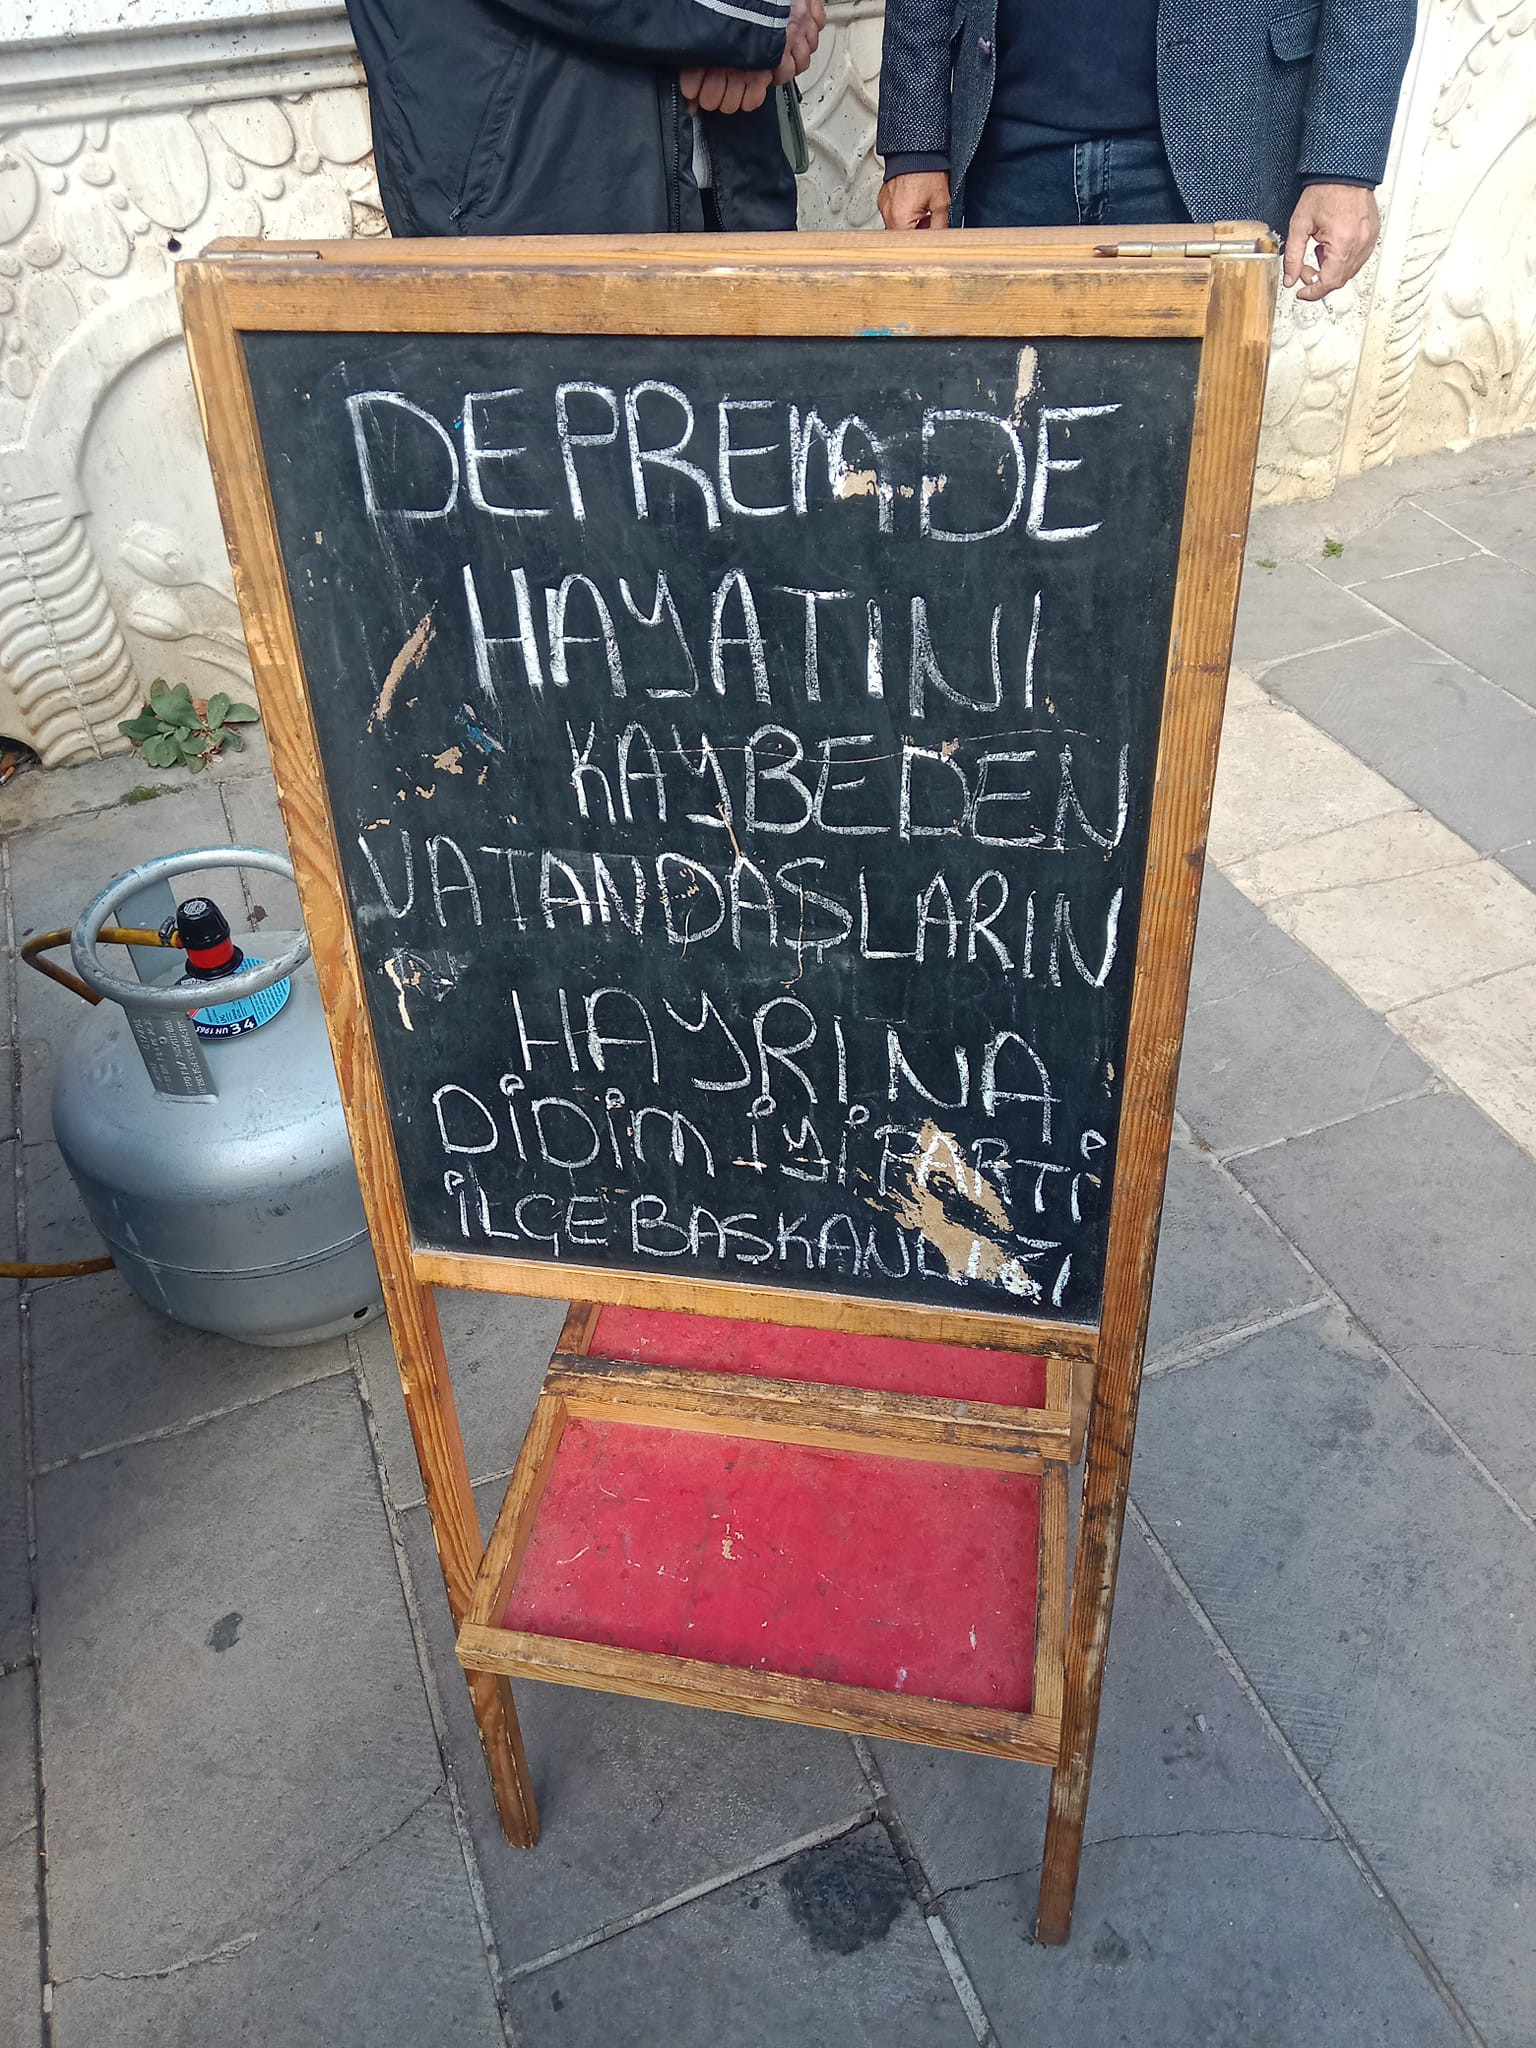 DEPREMDE
HAYATINI
KAYBEDEN
VATANDAŞLARIN
HAYRINA
DİDİM İYİ PARTİ
İLÇE BAŞKANLIĞI
UN 1965
34